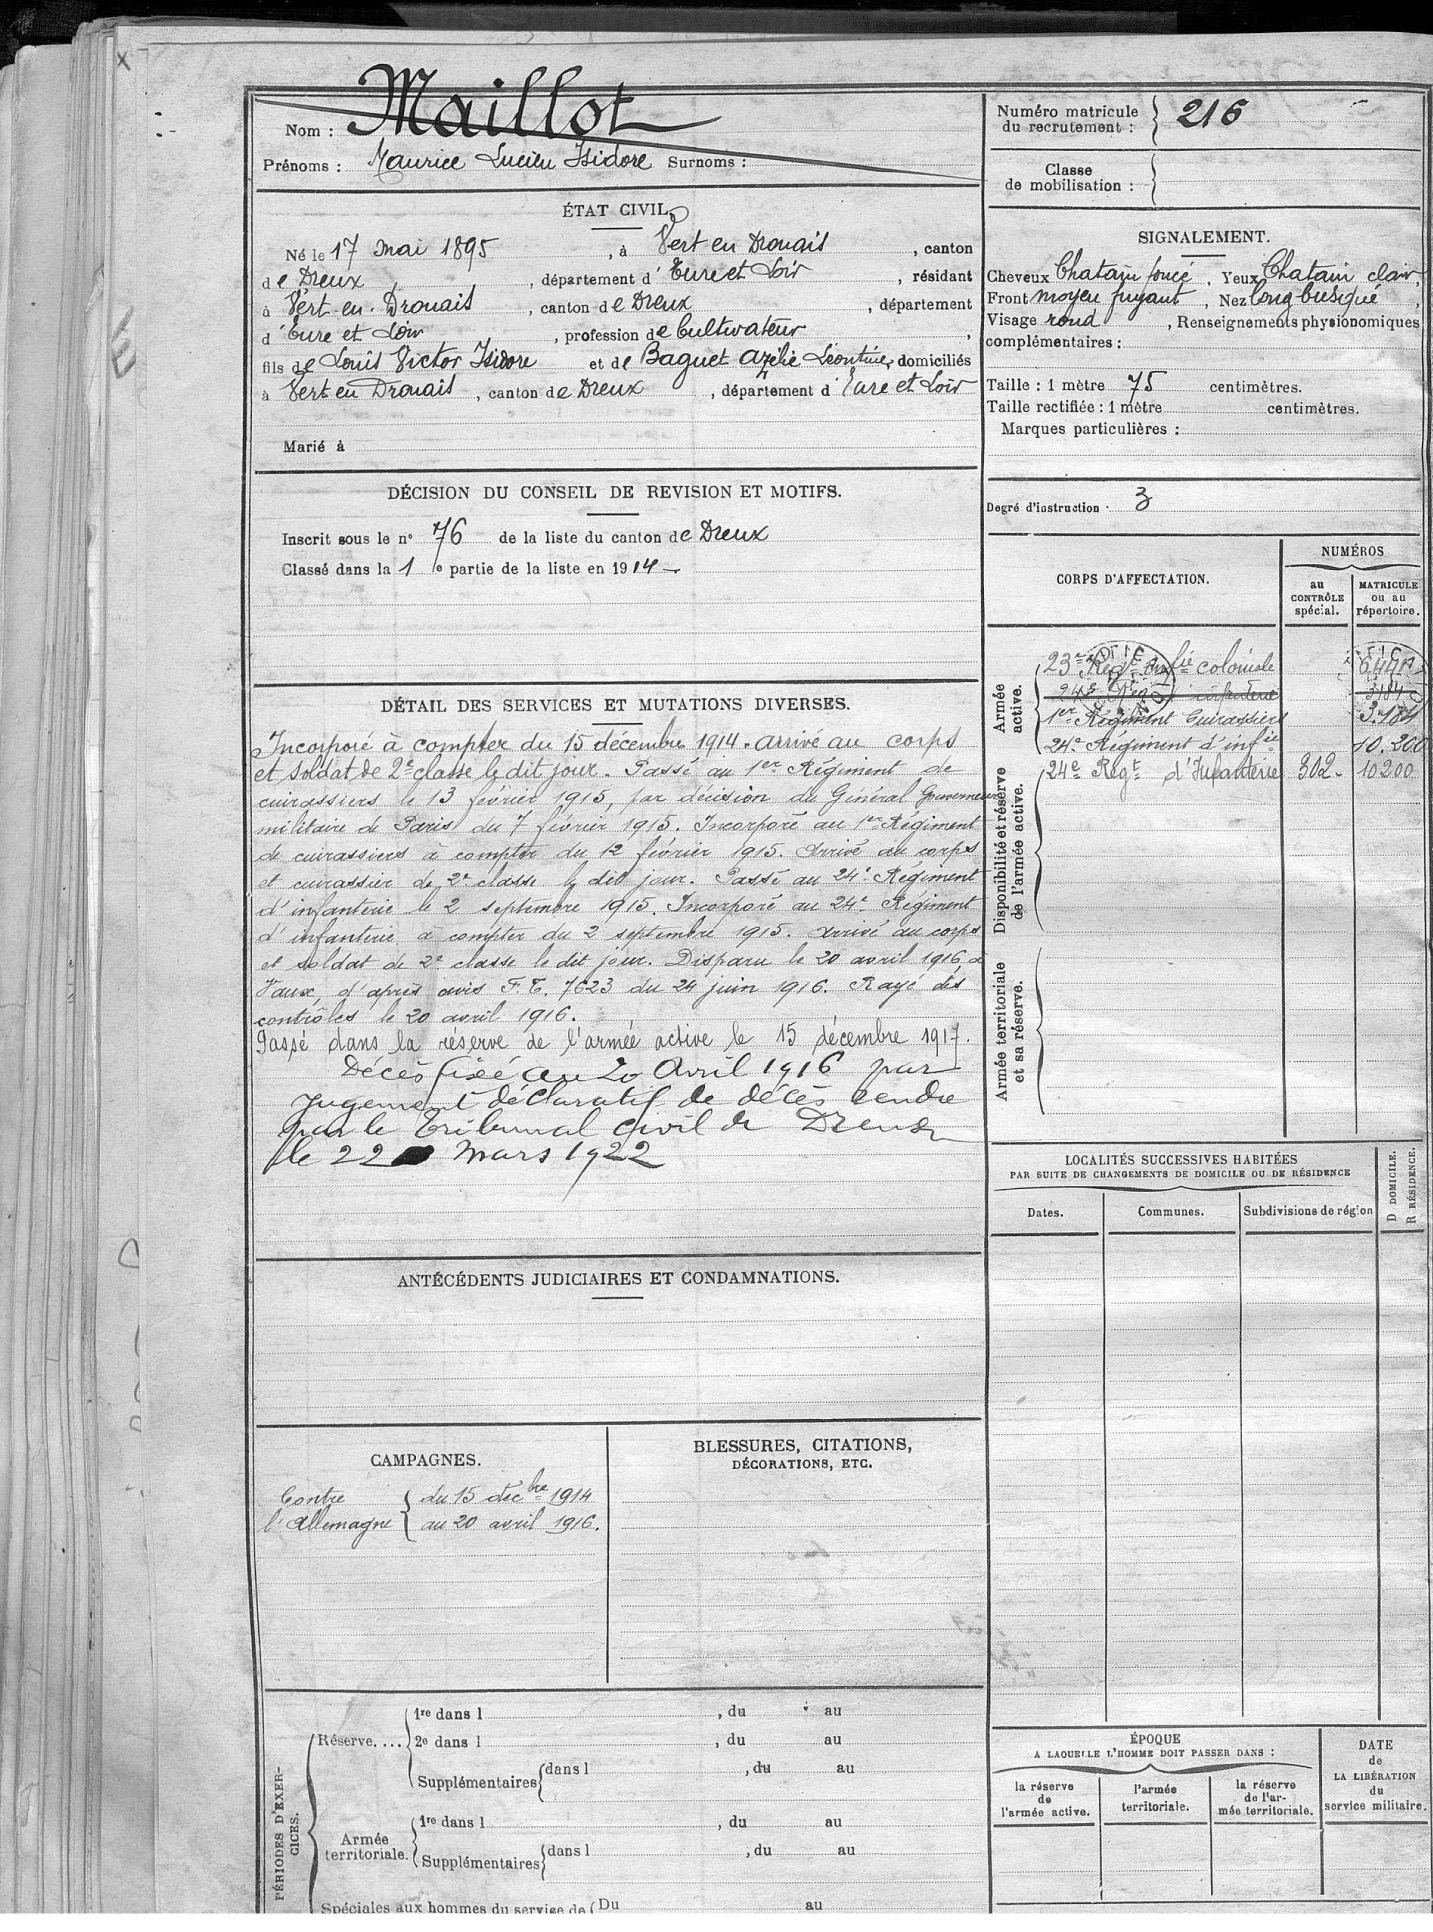 x
Nom : Maillot
Prénoms : Maurice Lucien Isidore Surnoms :
ÉTAT CIVIL.
Né le 17 mai 1895, à Vert en Drouais, canton
de Dreux, département d'Eure et Loir, résidant
à Vert en Drouais, canton de Dreux, département
d'Eure et Loir, profession de Cultivateur,
fils de Louis Victor Isidore et de Baguet Azélie Léontine, domiciliés
à Vert en Drouais, canton de Dreux, département d'Eure et Loir
Marié à
DÉCISION DU CONSEIL DE REVISION ET MOTIFS.
Inscrit sous le n° 76 de la liste du canton de Dreux
Classé dans la 1e partie de la liste en 1914
DÉTAIL DES SERVICES ET MUTATIONS DIVERSES.
Incorporé à compter du 15 décembre 1914. arrivé au corps
et soldat de 2e classe le dit jour. Passé au 1er Régiment de
cuirassiers le 13 février 1915, par décision du Général Gouverneur
militaire de Paris du 7 février 1915. Incorporé au 1er Régiment
de cuirassiers à compter du 12 février 1915. Arrivé au corps
et cuirassier de 2e classe le dit jour. Passé au 24e Régiment
d'infanterie le 2 septembre 1915. Incorporé au 24e Régiment
d'infanterie à compter du 2 septembre 1915. arrivé au corps
et soldat de 2e classe le dit jour. Disparu le 20 avril 1916 à
Vaux, d'après avis F.T. 7623 du 24 juin 1916. Rayé des
contrôles le 20 avril 1916.
Passé dans la réserve de l'armée active le 15 décembre 1917.
Décès fixé au 20 Avril 1916 par
jugement déclaratif de décès rendu
par le Tribunal civil de Dreux
le 22 mars 1922
ANTÉCÉDENTS JUDICIAIRES ET CONDAMNATIONS.
CAMPAGNES.
Contre l'Allemagne { du 15 décbre 1914
au 20 avril 1916.
BLESSURES, CITATIONS,
DÉCORATIONS, ETC.
PÉRIODES D'EXERCICES.
Réserve....
1re dans l , du au
2e dans l , du au
Supplémentaires { dans l , du au
Armée territoriale.
1re dans l , du au
Supplémentaires { dans l , du au
Spéciales aux hommes du service de ( Du au
Numéro matricule
du recrutement : 216
Classe
de mobilisation :
SIGNALEMENT.
Cheveux Chatain foncé, Yeux Chatain clair,
Front moyen fuyant, Nez long busqué,
Visage rond, Renseignements physionomiques
complémentaires :
Taille : 1 mètre 75 centimètres.
Taille rectifiée : 1 mètre centimètres.
Marques particulières :
Degré d'instruction : 3
CORPS D'AFFECTATION.
NUMÉROS
au
CONTRÔLE
spécial.
MATRICULE
ou au
répertoire.
Armée active.
23e Regt Infie coloniale
24e infanterie
1er Régiment Cuirassiers 3.184
24e Régiment d'infie 10.200
Disponibilité et réserve de l'armée active.
24e Regt d'Infanterie 302 10200
Armée territoriale et sa réserve.
LOCALITÉS SUCCESSIVES HABITÉES
PAR SUITE DE CHANGEMENTS DE DOMICILE OU DE RÉSIDENCE
D DOMICILE.
R RÉSIDENCE.
Dates.
Communes.
Subdivisions de région
ÉPOQUE
A LAQUELLE L'HOMME DOIT PASSER DANS :
la réserve
de
l'armée active.
l'armée
territoriale.
la réserve
de l'ar-
mée territoriale.
DATE
de
LA LIBÉRATION
du
service militaire.